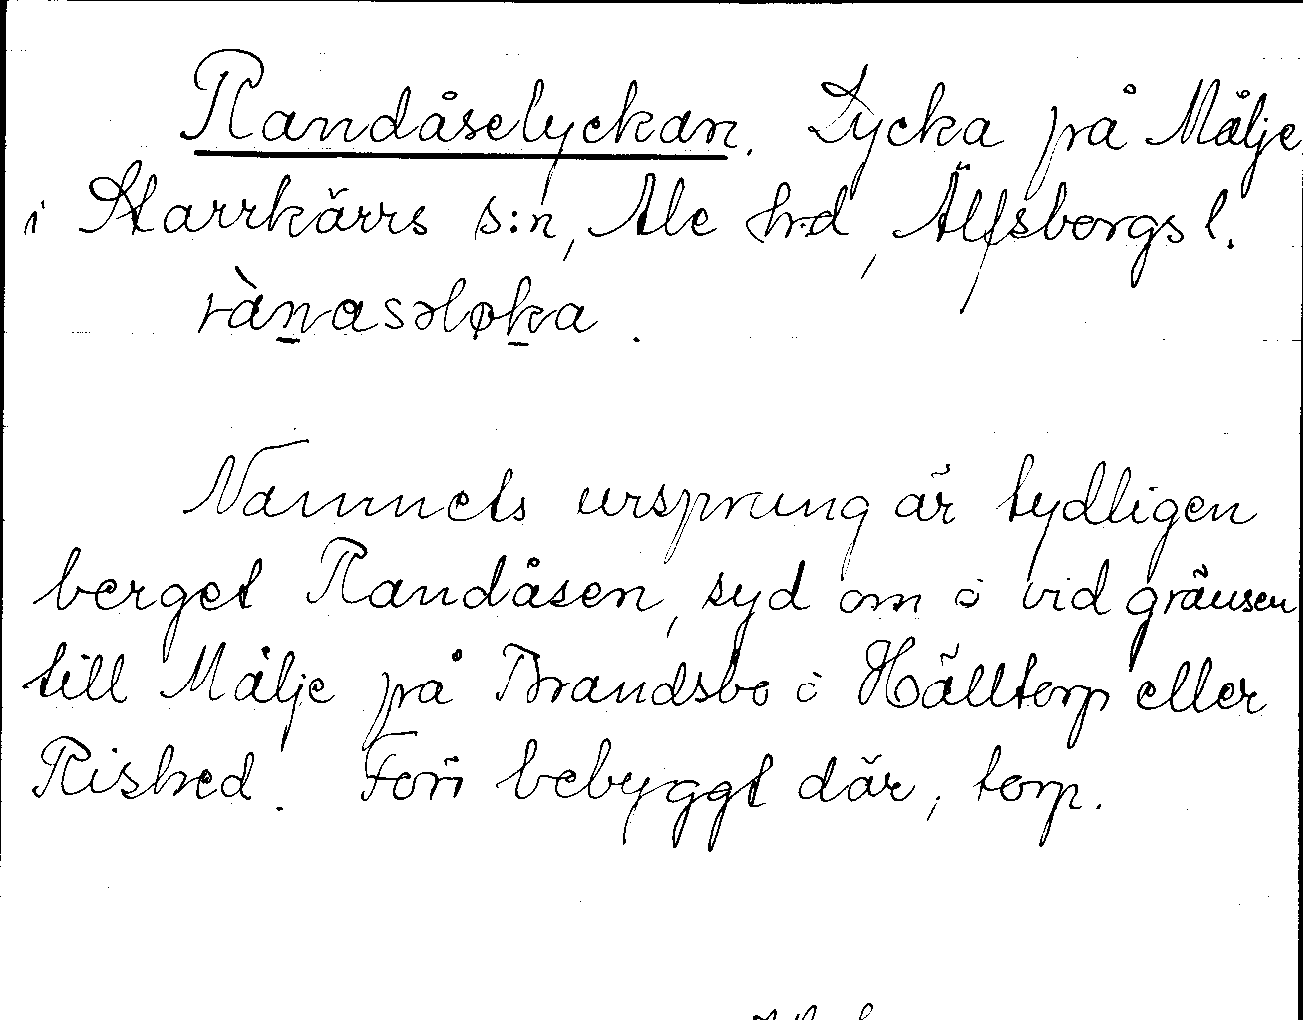 Randåselyckan. Lycka på Målje
i Starrkärrs s:n, Ale hrd, Älfsborgs l.
rànasəløka.
Namnets ursprung är tydligen
berget Randåsen, syd om o vid gränsen
till Målje på Brandsbo o Hälltorp eller
Rished. Förr bebyggt där, torp.